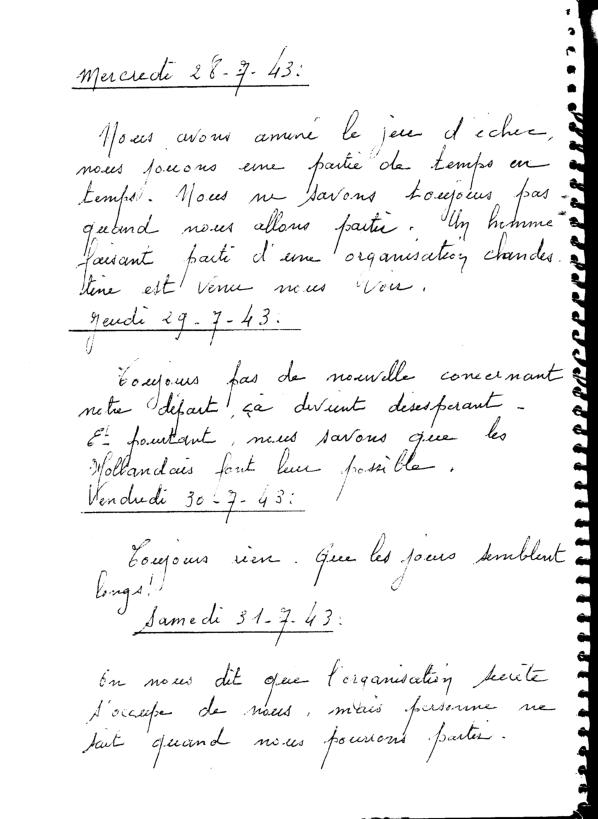 Mercredi 28-7-43:
Nous avons aminé le jeu d'échec,
nous jouons une partie de temps en
temps. Nous ne savons toujours pas
quand nous allons partir. Un homme
faisant parti d'une organisation clandes-
tine est venu nous voir.
Jeudi 29-7-43:
Toujours pas de nouvelle concernant
notre départ, ça devient desesperant -
Et pourtant, nous savons que les
Hollandais font leur possible.
Vendredi 30-7-43:
Toujours rien. Que les jours semblent
longs!
Samedi 31-7-43:
On nous dit que l'organisation secrète
s'occupe de nous, mais personne ne
sait quand nous pourrons partir.